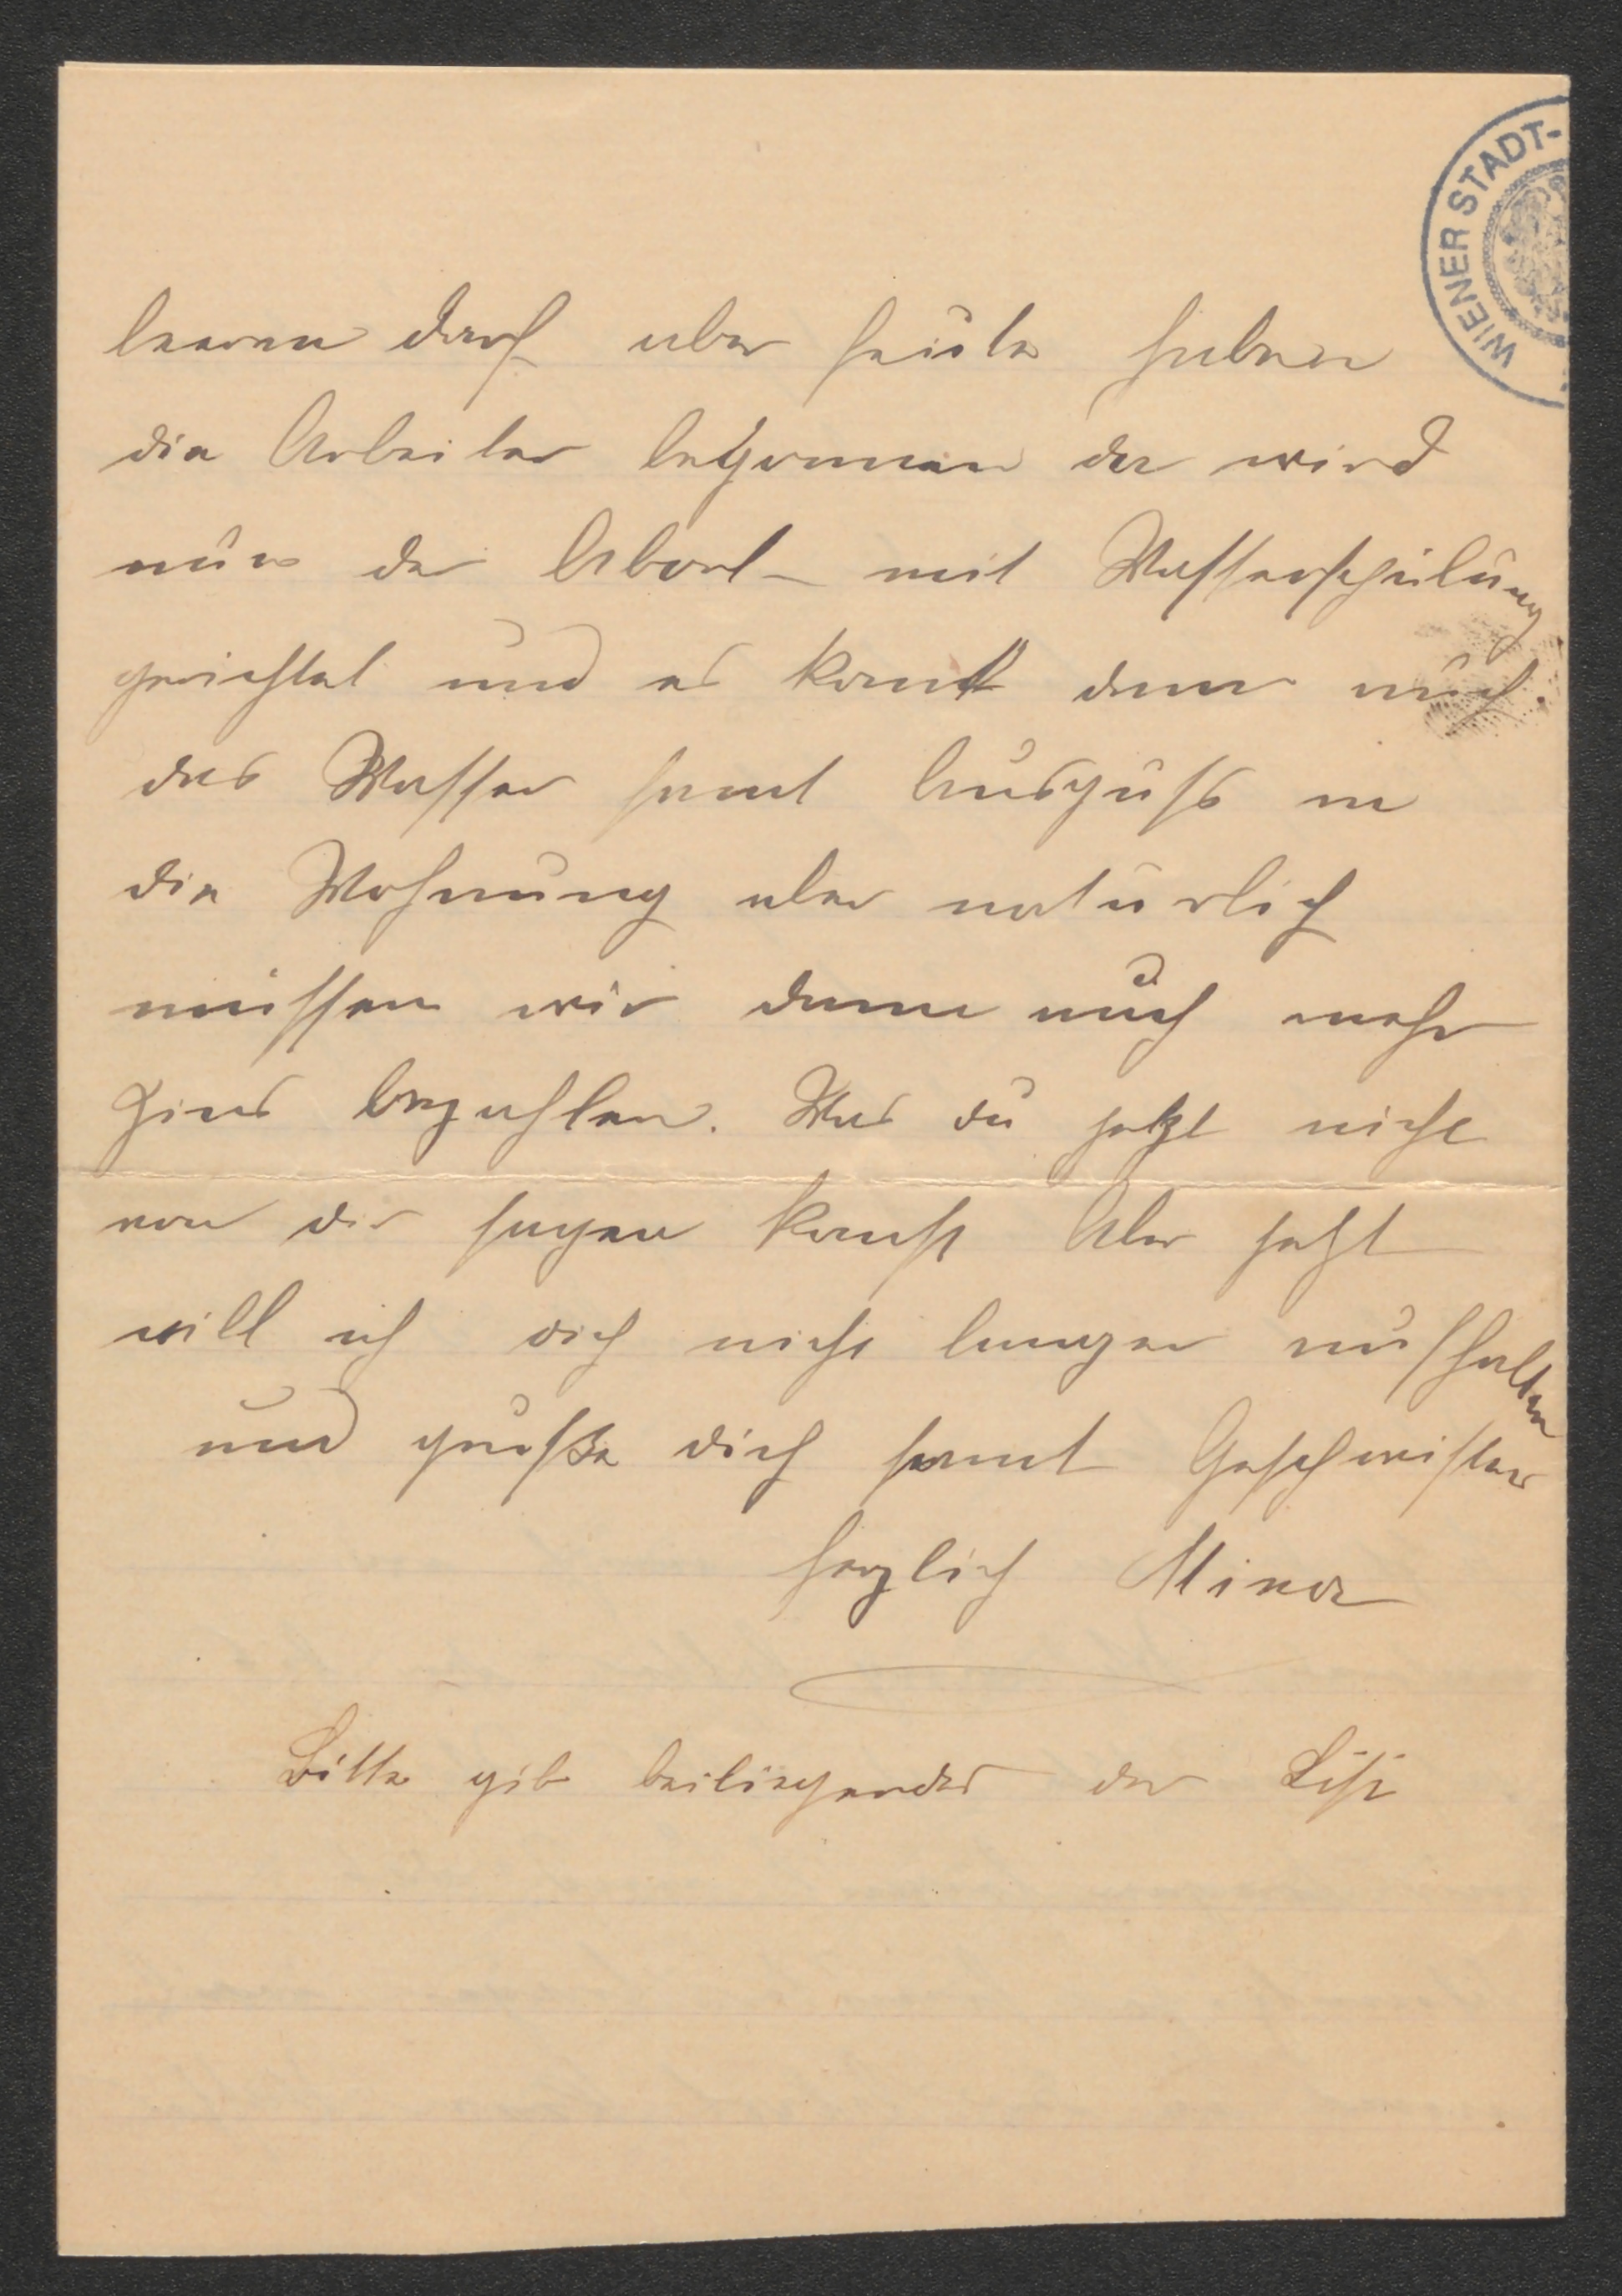 WIENER STADT-
leeren darf aber heute haben
die Arbeiter begonnen da wird
nun der Abort mit Wasserspülung
gerichtet und es kommt dann auch
das Wasser samt Ausguss in
die Wohnung aber natürlich
müssen wir dann auch mehr
Zins bezahlen. Was du jetzt nicht
von dir sagen kanst Aber jetzt
will ich dich nicht langer aufhalten
und grüße dich samt Geschwister
herzlich Minna
Bitte gib beiliegendes der Lisi